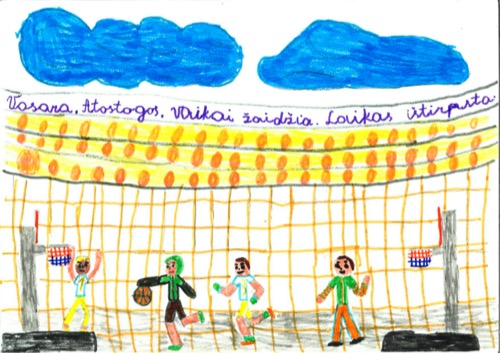 Vasara. Atostogos. Vaikai žaidžia. Laikas ištirpsta.